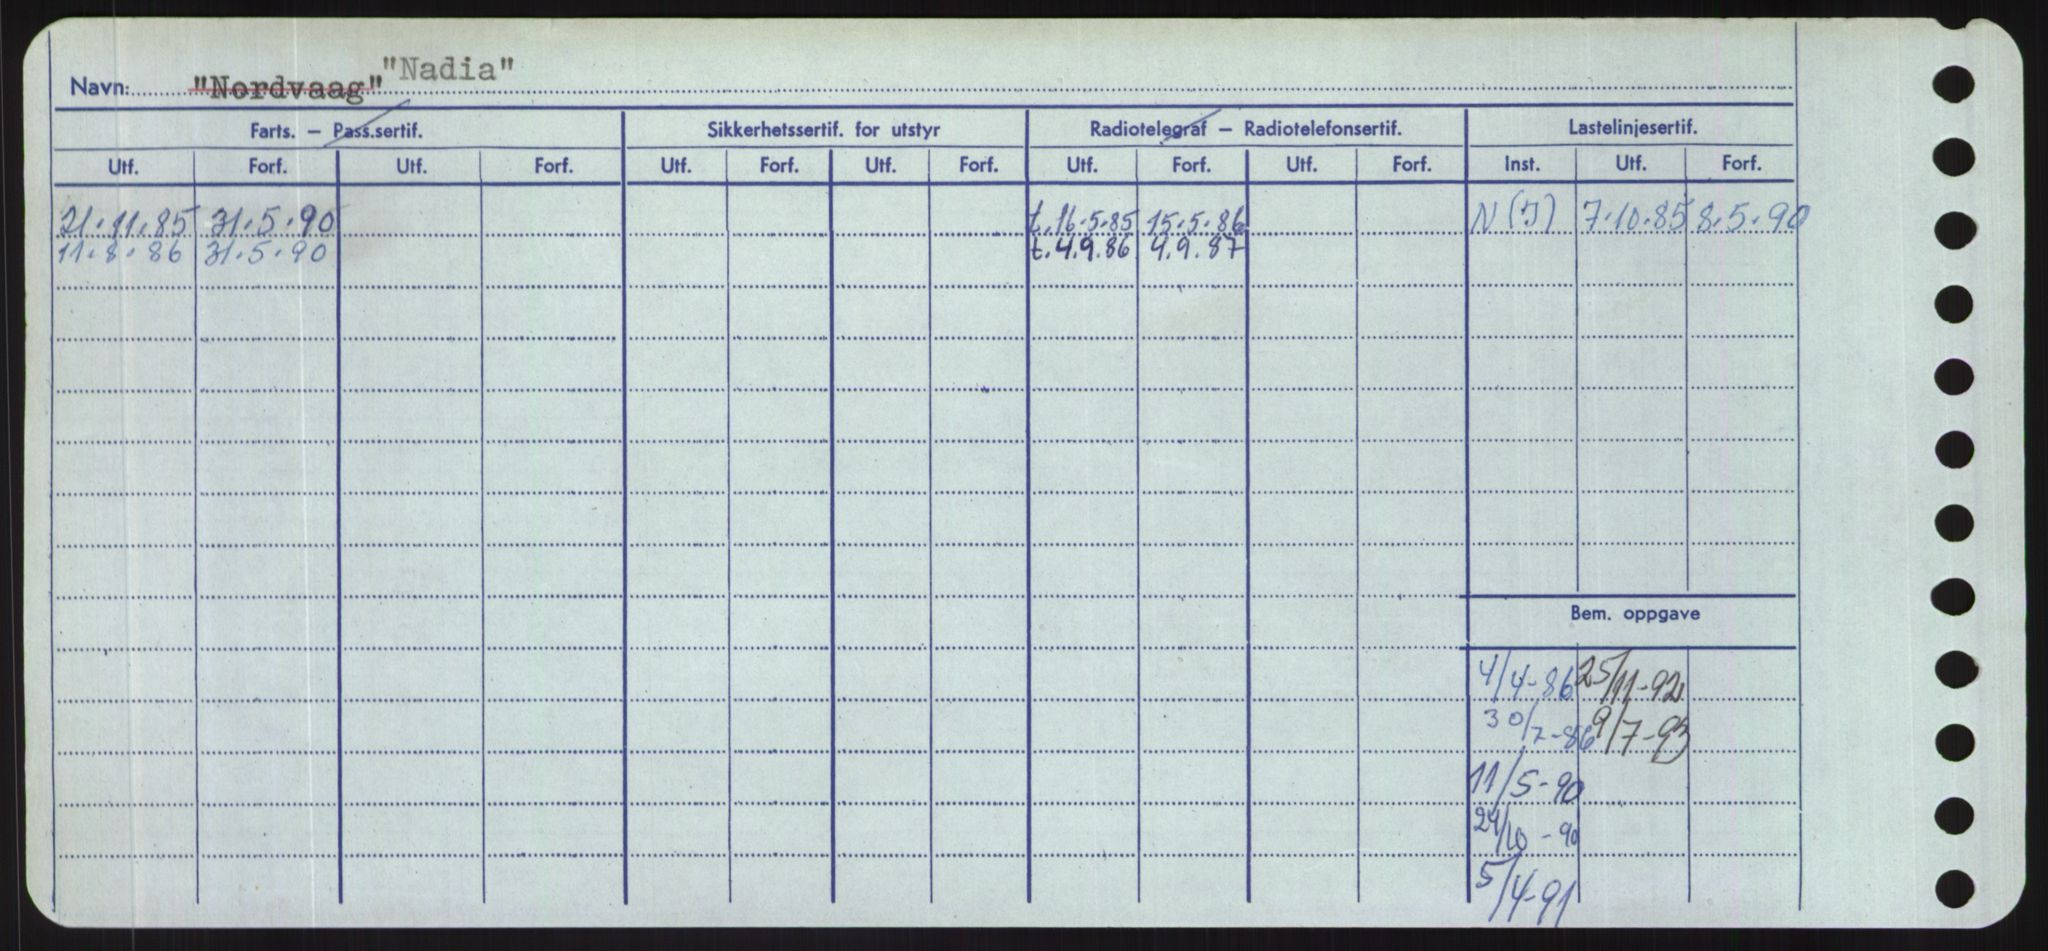 Navn: "Nordvaag" "Nadia"
Farts. — Pass.sertif. Sikkerhetssertif. for utstyr Radiotelegraf — Radiotelefonsertif. Lastelinjesertif.
Utf. Forf. Utf. Forf. Utf. Forf. Utf. Forf. Utf. Forf. Utf. Forf. Inst. Utf. Forf.
21.11.85 31.5.90 t.16.5.85 15.5.86 N (I) 7.10.85 8.5.90
11.8.86 31.5.90 t.4.9.86 4.9.87
Bem. oppgave
4/4-86 25/11-92
30/7-86 9/7-93
11/5-90
24/10-90
5/4-91